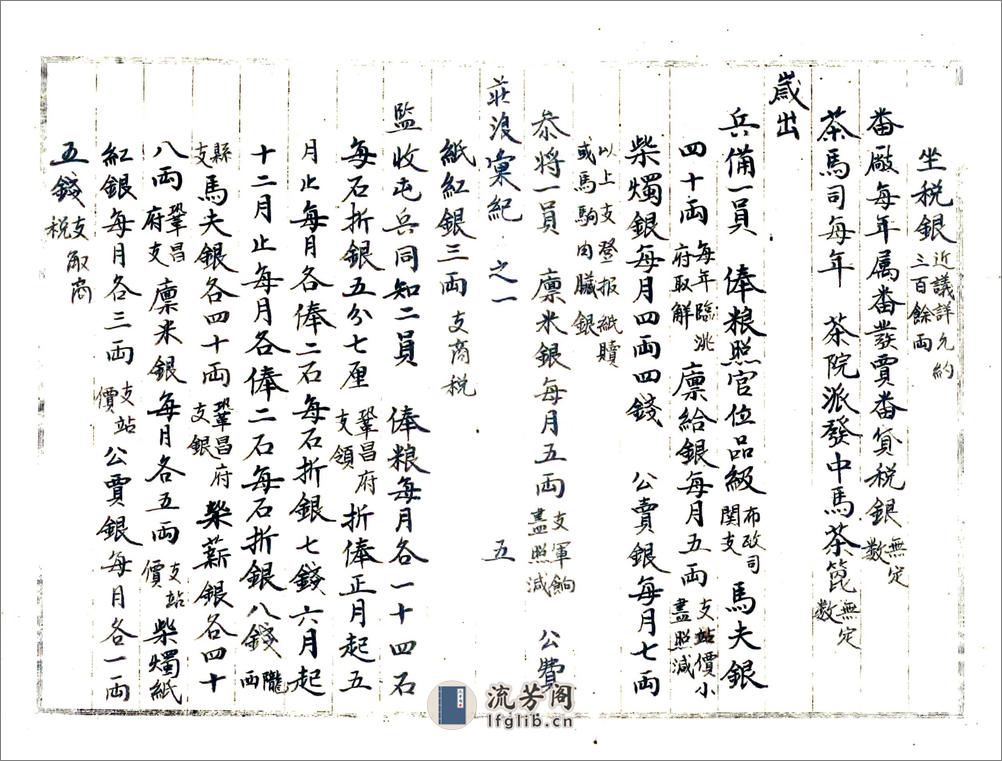 坐稅銀近議詳允約三百餘両
番廠每年属番發賣番貨稅銀無定数
茶馬司每年 茶院派發中馬茶篦無定数
歲出
兵備一員 俸粮照官位品級布政司関支 馬夫銀
四十両每年臨洮府取解 廪給銀每月五両支站價小盡照減
柴燭銀每月四両四錢 公賣銀每月七両
以上支登报紙贖或馬駒肉臟銀
叅將一員 廪米銀每月五両支軍餉盡照減 公費
莊浪彙紀 之一 五
紙紅銀三両 支商稅
監收屯兵同知二員 俸粮每月各一十四石
每石折銀五分七厘鞏昌府支領 折俸正月起五
月止每月各俸二石每石折銀七錢六月起
十二月止每月各俸二石每石折銀八錢隴西
縣支 馬夫銀各四十両鞏昌府支銀 柴薪銀各四十
八両鞏昌府支 廪米銀每月各五両支站價 柴燭紙
紅銀每月各三両支站價 公賣銀每月各一両
五錢支取商稅
流芳阁
lfglib.cn